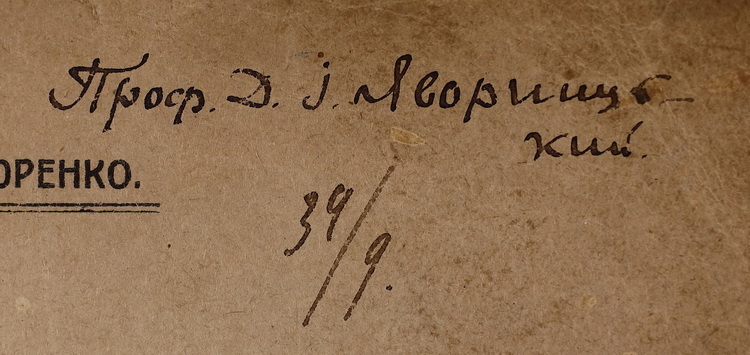 Проф. Д. І. Яворниць-
кий.
ОРЕНКО.
39/9.